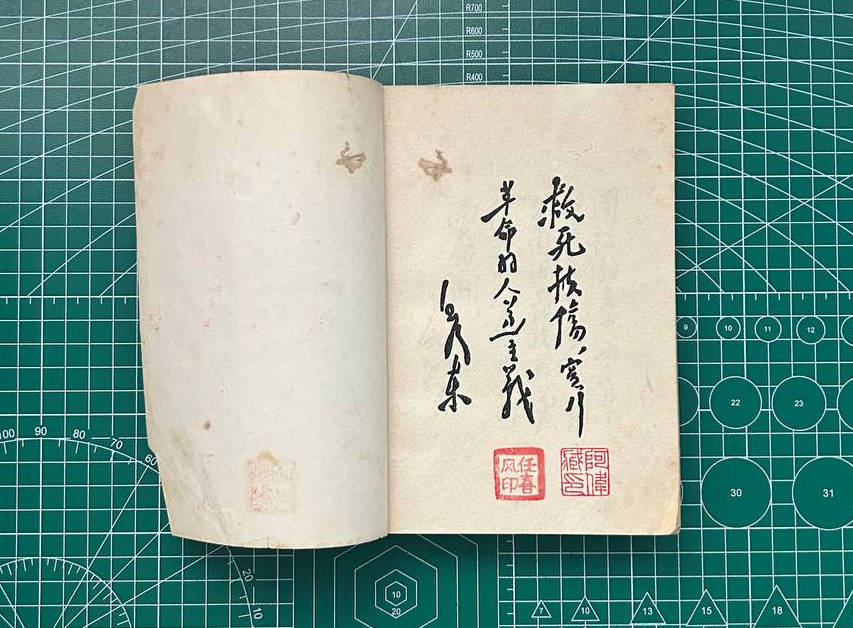 R700
R600
R500
R400
救死扶傷、實行
革命的人道主義
毛澤東
任春风印
阿偉藏印
9 10 11 12
22 23
30 31
100 90 80 70 60
20 10
10
20
7 10 13 15 18